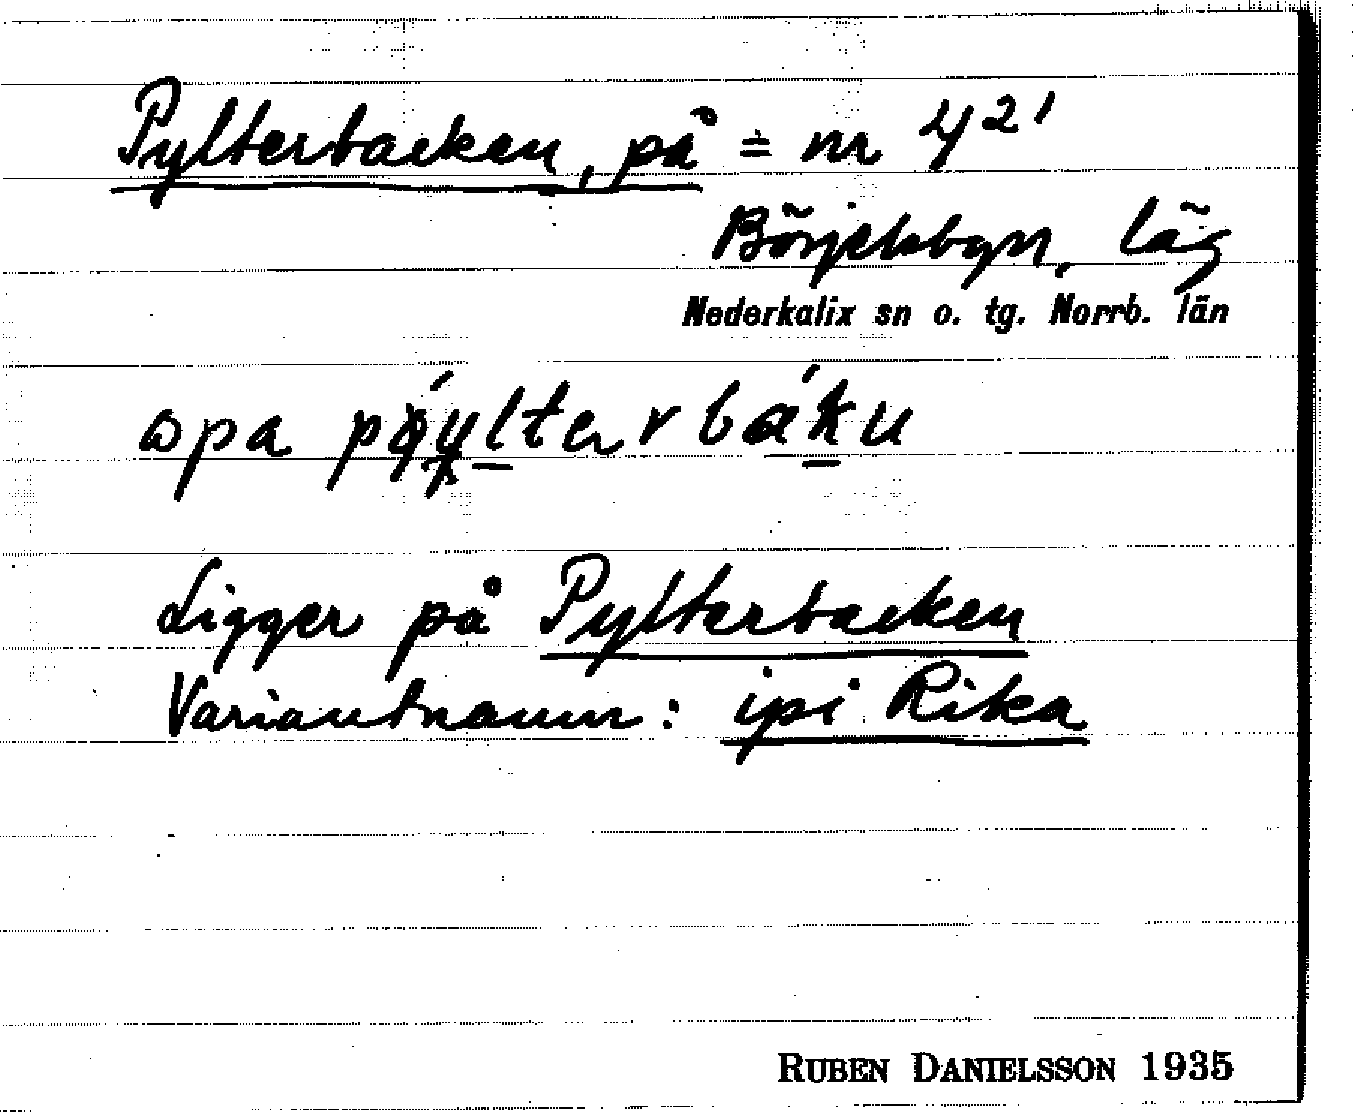 Pylterbacken, på = nr 4²¹
Börjelsbyn, läg
Nederkalix sn o. tg. Norrb. län
Ligger på Pylterbacken
Variantnamn: ipi Rika
RUBEN DANIELSSON 1935